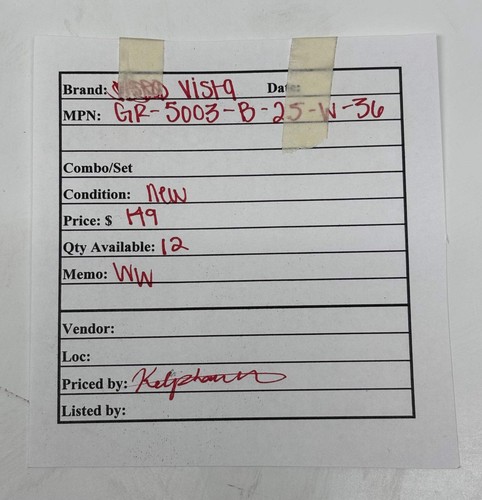 Brand: Vista Date:
MPN: GR-5003-B-25-W-36
Combo/Set
Condition: new
Price: $ 149
Qty Available: 12
Memo: WW
Vendor:
Loc:
Priced by:
Listed by: